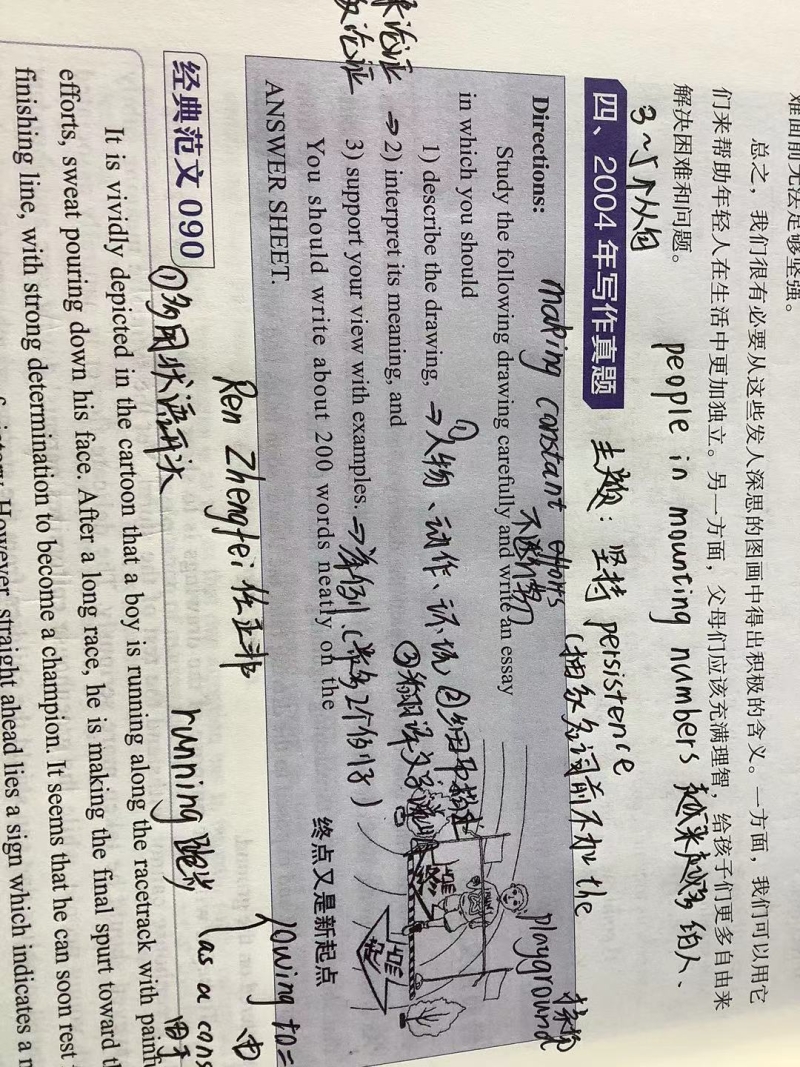 难面前无法足够坚强。
总之，我们很有必要从这些发人深思的图画中得出积极的含义。一方面，我们可以用它
们来帮助年轻人在生活中更加独立。另一方面，父母们应该充满理智，给孩子们更多自由来
解决困难和问题。
people in mounting numbers 越来越多的人、
3~5个从句
四、2004 年写作真题
主题：坚持 persistence
(抽象名词前不加 the
making constant efforts
不断作努力
Directions:
Study the following drawing carefully and write an essay
in which you should
1) describe the drawing,
⇒ ①人物、动作、环境
2) interpret its meaning, and
③翻译文字说明
3) support your view with examples.
⇒ 举例 (举出2个例子)
You should write about 200 words neatly on the
ANSWER SHEET.
playground 操场
终点
起点
终点又是新起点
Ren Zhengfei 任正非
running 跑步
owing to=
经典范文 090
①多用状语开头
as a cons
It is vividly depicted in the cartoon that a boy is running along the racetrack with painf
efforts, sweat pouring down his face. After a long race, he is making the final spurt toward t
finishing line, with strong determination to become a champion. It seems that he can soon rest
However, straight ahead lies a sign which indicates a n